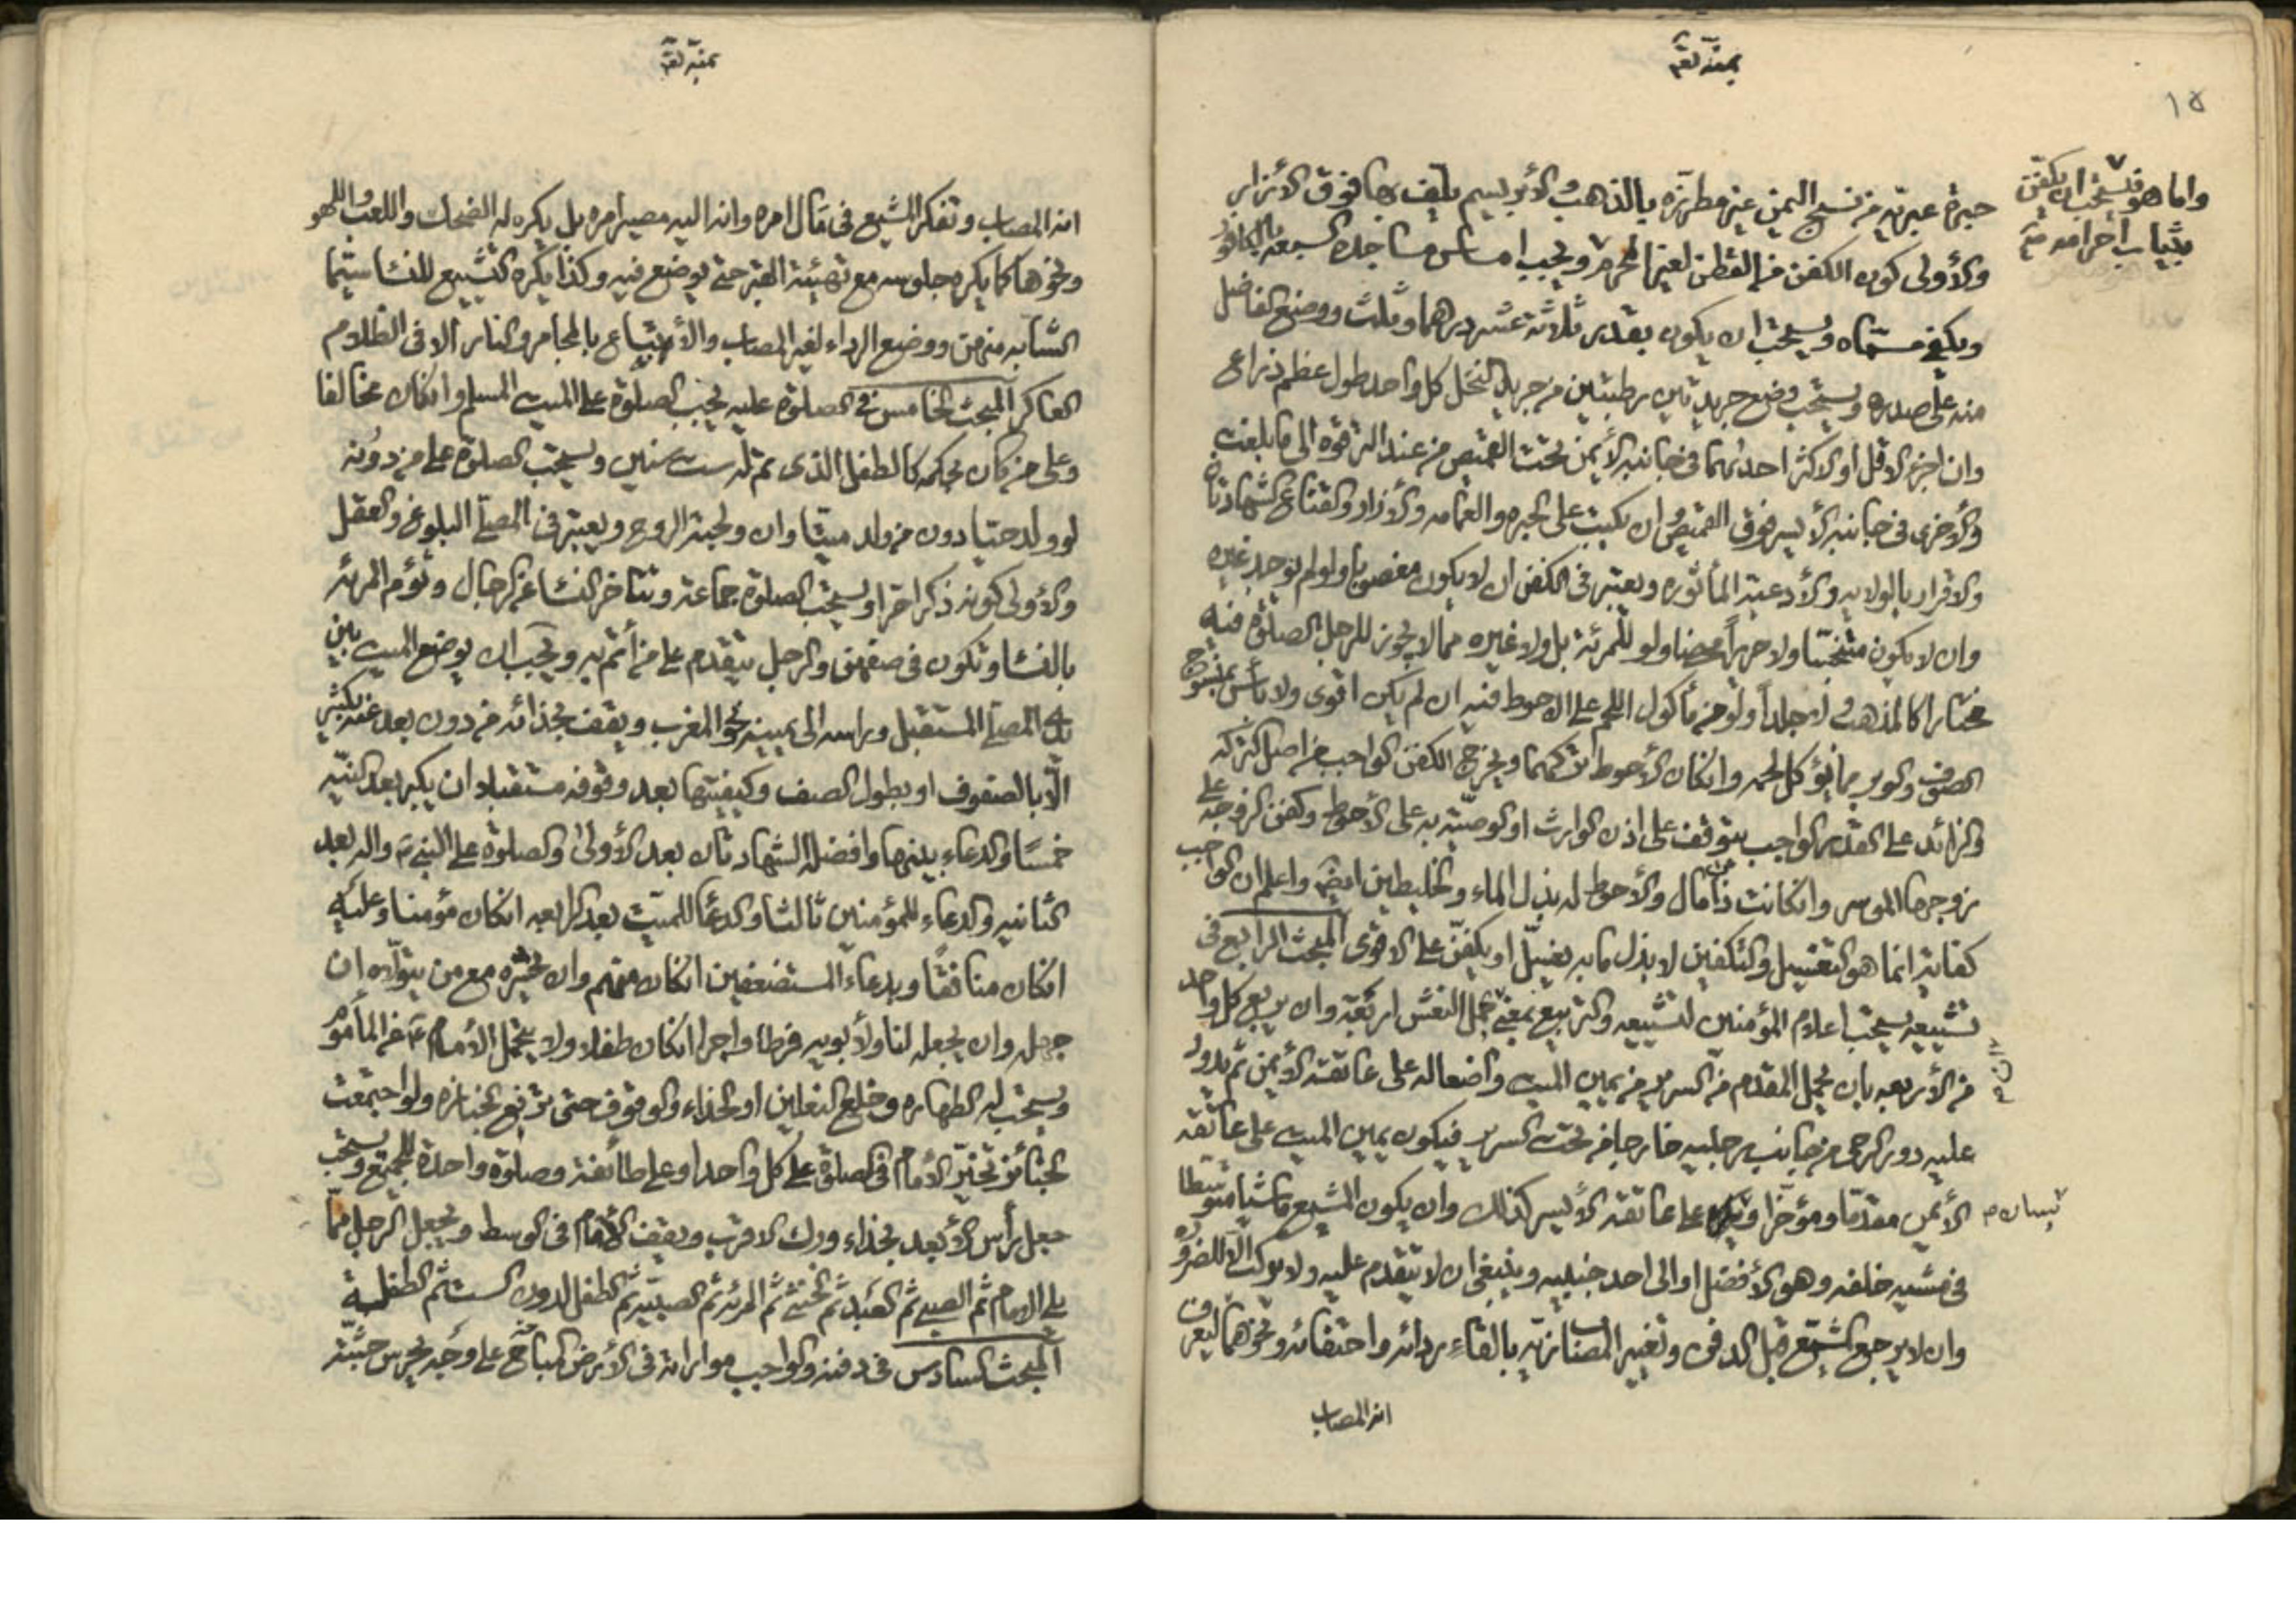 بمنه تعم
١٥
واما هو فيستحب ان يكفن
بثياب احرامه منه
حبرة عبرية من نسج اليمن غير مطرزه بالذهب والأبريسم يلف بها فوق الأزار
والأولى كون الكفن من القطن لغير المحرم ويجب امساس مساجده السبعه بالكافور
ويكفي مسماه ويستحب ان يكون بقدر ثلاثة عشر درهما وثلث ووضع الفاضل
منه على صدره ويستحب وضع جريدتين رطبتين من جريد النخل كل واحد طول عظم ذراع
وان اجزء الاقل او الاكثر احدٰهما في جانبه الأيمن تحت القميص من عند الترقوه الى ما بلغت
والأخرى في جانبه الأيسر فوق القميص وان يكتب على الحبره والعمامه والأزار والقناع الشهادتان
والاقرار بالولايه والأدعية المأثوره ويعتبر في الكفن ان لا يكون مغصوبا ولو لم يوجد غيره
وان لا يكون متنجسا ولا حريراً محضا ولو للمرئة بل ولا غيره مما لا يجوز للرجل الصلوة فيه
مختارا كالمذهب ولا جلداً ولو من مأكول اللحم على الاحوط فيه ان لم يكن اقوى ولا بأس بمنسوج
الصوف والوبر مما يؤكل لحمه وانكان الأحوط تركهما ويخرج الكفن الواجب من اصل التركه
والزائد على القدر الواجب يتوقف على اذن الوارث او الوصيّة به على الأحوط وكفن الزوجة على
زوجها الموسر وانكانت ذات مال والأحوط له بذل الماء والخليطين ايضَ واعلم ان الواجب
كفاية انما هو التغسيل والتكفين لا بذل ما به يغسّل او يكفّن على الاقوى المبحث الرابع في
تشييعه يستحب اعلام المؤمنين لتشييعه والتربيع بمعنى حمل النعش اربعة وان يربع كل واحد
من الأربعه بان يحمل المقدم من السرير من يمين الميت واضعا له على عاتقه الأيمن ثم يدور
عليه دور الرحى من جانب رجليه خارجا من تحت السرير فيكون يمين الميت على عاتقه
الأيمن مقدمّا ومؤخّرا و على عاتقه الأيسر كذلك وان يكون المشيع ماشيا متوسطا
يسارهم
في مشيه خلفه وهو الأفضل او الى احد جنبيه وينبغي ان لا يتقدم عليه ولا يركب الّا لضروره
وان لا يرجع المشيع قبل الدفن وتغيير المصاب زيّه بالقاء ردائه واحتفائه ونحوهما ليعرف
انه المصاب
بمنه تعم
انه المصاب وتفكر المشيع في مآل امره وانه اليه مصير امره بل يكره له الضحك واللعب واللهو
ونحوها كما يكره جلوسه مع تهيئة القبر حتى يوضع فيه وكذا يكره التشييع للنساء سيّما
الشابه منهن ووضع الرداء لغير المصاب والأتباع بالمجامر والنار الا في الظلام
العاكر المبحث الخامس في الصلوة عليه يجب الصلوة على الميت المسلم وانكان مخالفا
وعلى من كان بحكمه كالطفل الذي تم له ست سنين ويستحب الصلوة على من دونه
لو ولد حيّا دون من ولد ميتا وان ولجته الروح ويعتبر في المصلّي البلوغ والعقل
والأولى كونه ذكرا حرّا ويستحب الصلوة جماعة وتتاخر النساء عن الرجال وتؤم المرئه
بالنساء وتكون في صفهن والرجل يتقدم على من أتم به ويجب ان يوضع الميت بين
يدي المصلّي المستقبل وراسه الى يمينه نحو المغرب ويقف بحذائه من دون بعد عنه بكثير
الّا بالصفوف او بطول الصف وكيفيتها بعد وقوفه مستقبلا ان يكبر بعد النيّه
خمسًا والدعاء بينها وافضله الشهادتان بعد الأولىٰ والصلوة على النبي صَ واله بعد
الثانيه والدعاء للمؤمنين ثالثا والدعاء للميّت بعد الرابعه انكان مؤمنا وعليه
انكان منافقًا وبدعاء المستضعفين انكان منهم وان يحشره مع من يتولّاه ان
جهله وان يجعله لنا ولأبويه فرطا واجرا انكان طفلا ولا يتحمل الأمام عن المأموم
ويستحب له الطهاره وخلع النعلين او الحذاء والوقوف حتى ترفع الجنازه ولو اجتمعت
الجنائز تخيّر الأمام في الصلوة على كل واحد او على طائفة وصلوة واحدة للجميع ويستحب
جعل رأس الأبعد بحذاء ورك الاقرب ويقف الأمام في الوسط ويجعل الرجل ممّا
يلي الامام ثم الصبي ثم العبد ثم الخنثى ثم المرئه ثم الصبيّه ثم الطفل لدون الست ثم الطفلية
المبحث السادس في دفنه والواجب مواراته في الأرض المباح على وجه يحرس جثّته